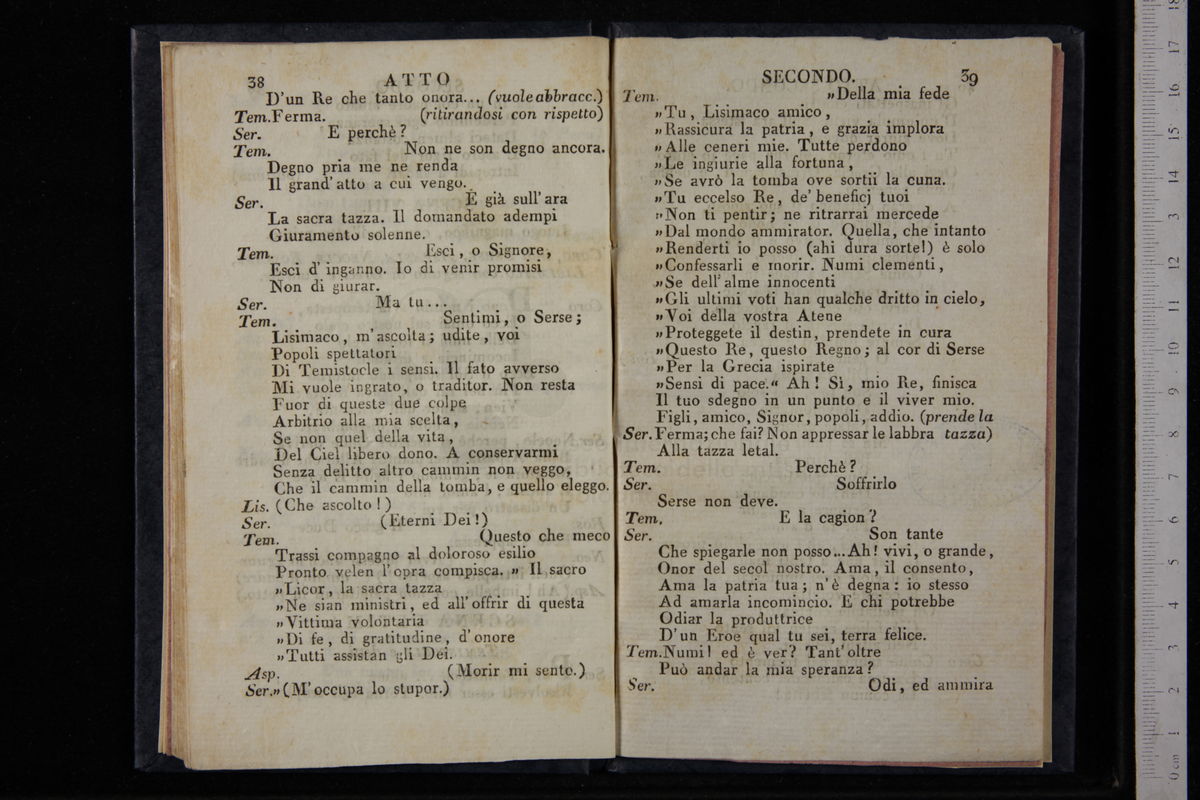 38 ATTO
D'un Re che tanto onora... (vuole abbracc.)
Tem. Ferma. (ritirandosi con rispetto)
Ser. E perchè?
Tem. Non ne son degno ancora.
Degno pria me ne renda
Il grand' atto a cui vengo.
Ser. È già sull' ara
La sacra tazza. Il domandato adempi
Giuramento solenne.
Tem. Esci, o Signore,
Esci d' inganno. Io di venir promisi
Non di giurar.
Ser. Ma tu...
Tem. Sentimi, o Serse;
Lisimaco, m' ascolta; udite, voi
Popoli spettatori
Di Temistocle i sensi. Il fato avverso
Mi vuole ingrato, o traditor. Non resta
Fuor di queste due colpe
Arbitrio alla mia scelta,
Se non quel della vita,
Del Ciel libero dono. A conservarmi
Senza delitto altro cammin non veggo,
Che il cammin della tomba, e quello eleggo.
Lis. (Che ascolto!)
Ser. (Eterni Dei!)
Tem. Questo che meco
Trassi compagno al doloroso esilio
Pronto velen l' opra compisca. „ Il sacro
„Licor, la sacra tazza
„Ne sian ministri, ed all' offrir di questa
„Vittima volontaria
„Di fe, di gratitudine, d' onore
„Tutti assistan gli Dei.
Asp. (Morir mi sento.)
Ser. „(M' occupa lo stupor.)
SECONDO. 39
Tem. „Della mia fede
„Tu, Lisimaco amico,
„Rassicura la patria, e grazia implora
„Alle ceneri mie. Tutte perdono
„Le ingiurie alla fortuna,
„Se avrò la tomba ove sortii la cuna.
„Tu eccelso Re, de' beneficj tuoi
„Non ti pentir; ne ritrarrai mercede
„Dal mondo ammirator. Quella, che intanto
„Renderti io posso (ahi dura sorte!) è solo
„Confessarli e morir. Numi clementi,
„Se dell' alme innocenti
„Gli ultimi voti han qualche dritto in cielo,
„Voi della vostra Atene
„Proteggete il destin, prendete in cura
„Questo Re, questo Regno; al cor di Serse
„Per la Grecia ispirate
„Sensi di pace.“ Ah! Sì, mio Re, finisca
Il tuo sdegno in un punto e il viver mio.
Figli, amico, Signor, popoli, addio. (prende la
Ser. Ferma; che fai? Non appressar le labbra tazza)
Alla tazza letal.
Tem. Perchè?
Ser. Soffrirlo
Serse non deve.
Tem. E la cagion?
Ser. Son tante
Che spiegarle non posso... Ah! vivi, o grande,
Onor del secol nostro. Ama, il consento,
Ama la patria tua; n' è degna: io stesso
Ad amarla incomincio. E chi potrebbe
Odiar la produttrice
D' un Eroe qual tu sei, terra felice.
Tem. Numi! ed è ver? Tant' oltre
Può andar la mia speranza?
Ser. Odi, ed ammira
0 cm 1 2 3 4 5 6 7 8 9 10 11 12 13 14 15 16 17 18